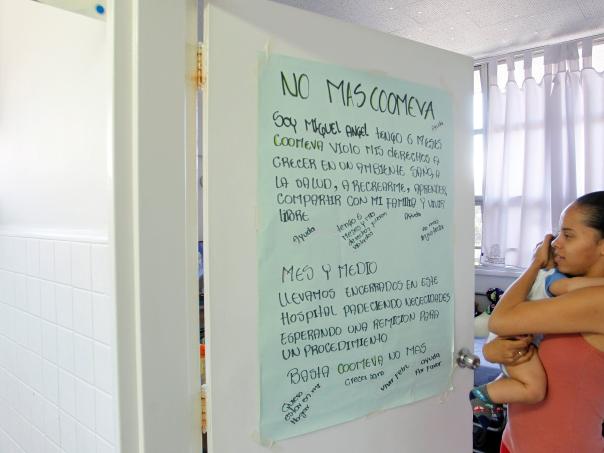 NO MAS COOMEVA
Ayuda
SOY MIGUEL ANGEL TENGO 6 MESES
COOMEVA VIOLO MIS DERECHOS A
CRECER EN UN AMBIENTE SANO, A
LA SALUD, A RECREARME, APRENDER,
COMPARTIR CON MI FAMILIA Y VIVIR
LIBRE
Ayuda
tengo 6
meses y mis
derechos
violados
Ayuda
no mas
MES Y MEDIO
LLEVAMOS ENCERRADOS EN ESTE
HOSPITAL PADECIENDO NECESIDADES
ESPERANDO UNA REMICION PARA
UN PROCEDIMIENTO
BASTA COOMEVA NO MAS
Quiero
estar en mi
Hogar
crecer sano
vivir feliz
ayuda
Por Favor